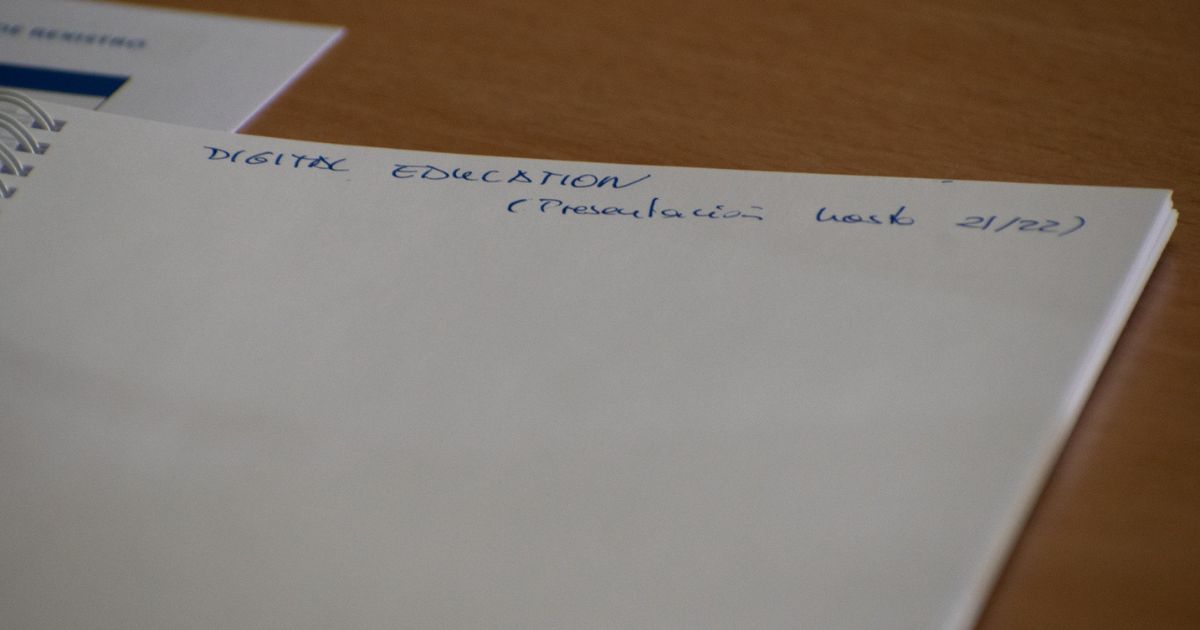 DE REGISTRO
DIGITAL EDUCATION
(Presentación hasta 21/22)